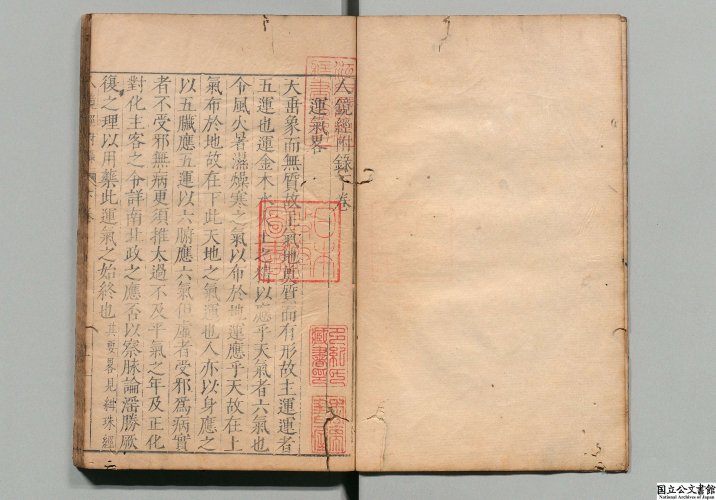 人鏡經附錄下卷
運氣畧
天垂象而無質故主氣地奠質而有形故主運運者
五運也運金木水火土之精以應乎天氣者六氣也
令風火暑濕燥寒之氣以布於地運應乎天故在上
氣布於地故在下此天地之氣運也人亦以身應之
以五臟應五運以六腑應六氣但虛者受邪爲病實
者不受邪無病更須推太過不及平氣之年及正化
對化主客之令詳南北政之應否以察脉論淫勝厥
復之理以用藥此運氣之始終也其要畧見紺珠經
国立公文書館
National Archives of Japan